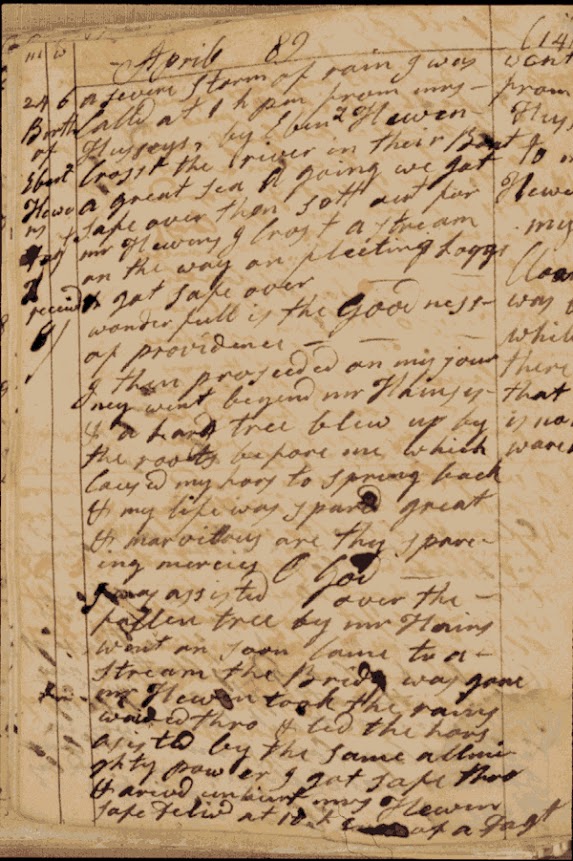 m w April 89 (141
24 6 a severe Storm of rain I was
Birth Calld at 1 h pm from mrs
of Husseys, by Ebenz Hewen
Ebenz Crosst the river in their Boat
Hewe a great sea A going we got
ns safe over then sett out for
mr Hewens I Crost a stream
on the way on fleeting Loggs
receivd & got safe over
wonderfull is the Goodness
of providence
I then proseeded on my jour
ney went beyond mr Hainses
& a Larg tree blew up by
the roots before me which
Caused my hors to spring back
& my life was spared great
& marvilous are thy spare
ing mercies O God
I was assisted over the
fallen tree by mr Hains
went on soon Came to a
stream the Bridg was gone
mr Hewen took the rains
waded thro & led the hors
asisted by the same allmi
ghty power I got safe thro
& arivd unhurt mrs Hewen
safe Delivd at 10 h of a Dagt
went
from
Hus
to
Hewe
my
Cloa
was
while
there
that
is no